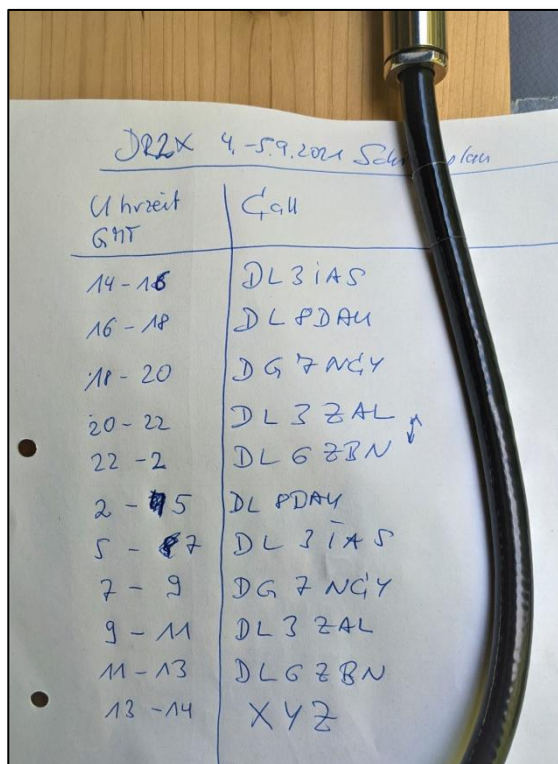 DR2X 4.-5.9.2021
Uhrzeit GMT Call
14-16 DL3iAS
16-18 DL8DAU
18-20 DG7NGY
20-22 DL3ZAL
22-2 DL6ZBN
2-5 DL8DAU
5-7 DL3iAS
7-9 DG7NGY
9-11 DL3ZAL
11-13 DL6ZBN
13-14 XYZ